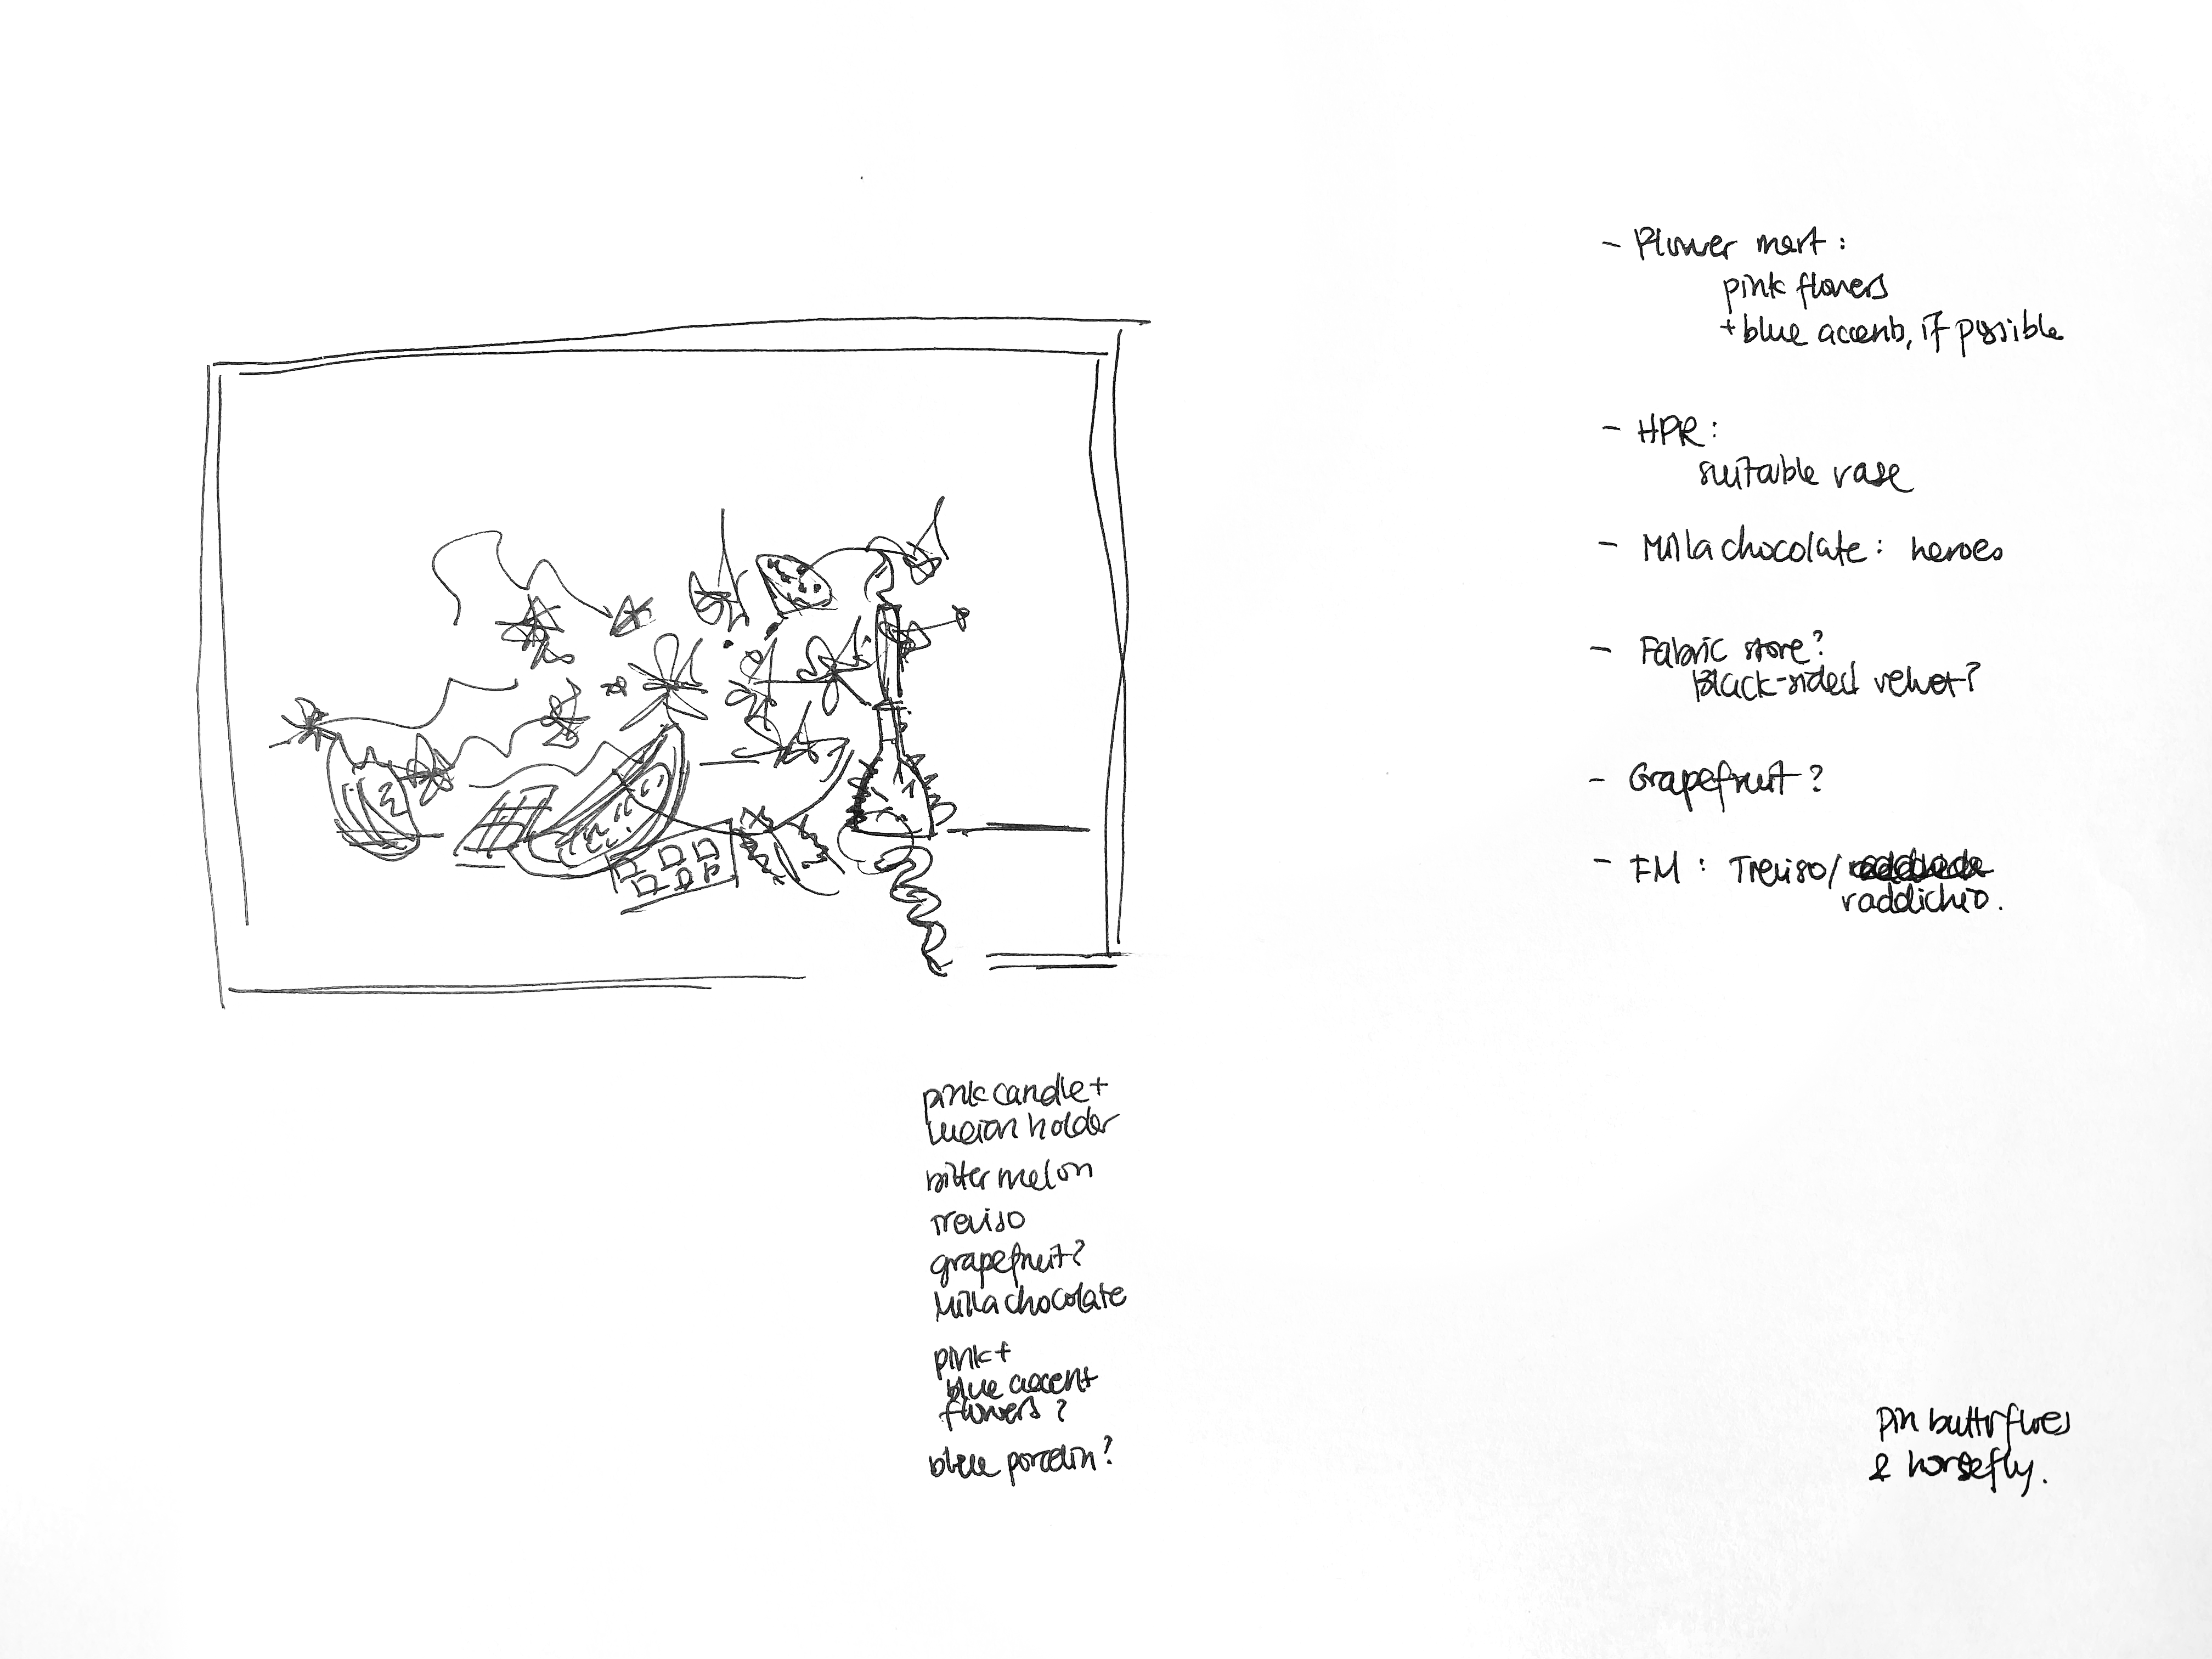 - Flower mart:
pink flowers
+ blue accents, if possible
- HPR:
suitable vase
- Milla chocolate: heroes
- Fabric store?
Black-sided velvet?
- Grapefruit?
- FM: Treviso/
raddichio.
pink candle +
holder
bitter melon
Treviso
grapefruit?
Milla chocolate
pink +
blue accent
flowers?
blue porcelin?
pin butterflies
& horsefly.